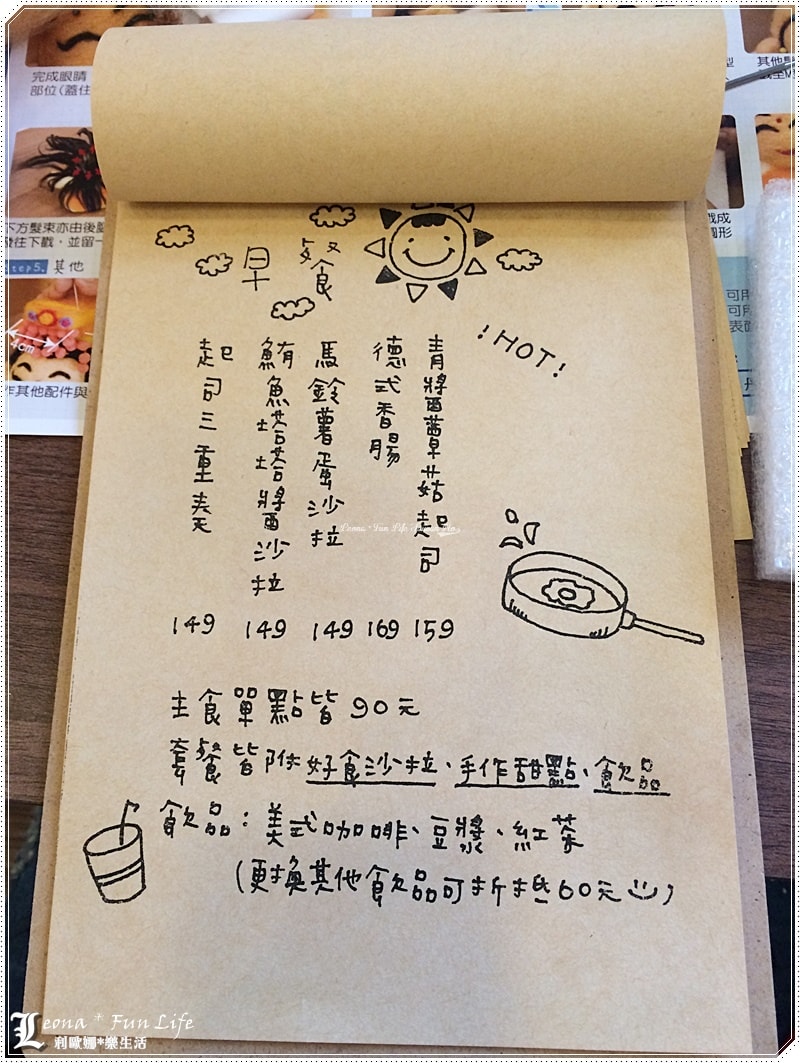 早餐
!HOT!
青醬蕈菇起司
159
德式香腸
169
馬鈴薯蛋沙拉
149
鮪魚塔塔醬沙拉
149
起司三重奏
149
主食單點皆90元
套餐皆附好食沙拉、手作甜點、飲品
飲品：美式咖啡、豆漿、紅茶
(更換其他飲品可折抵60元)
完成眼睛
部位(蓋住
往下戳，並留一
Step5. 其他
4cm
作其他配件與
戳成
圓形
表面
Leona * Fun Life
利歐娜*樂生活